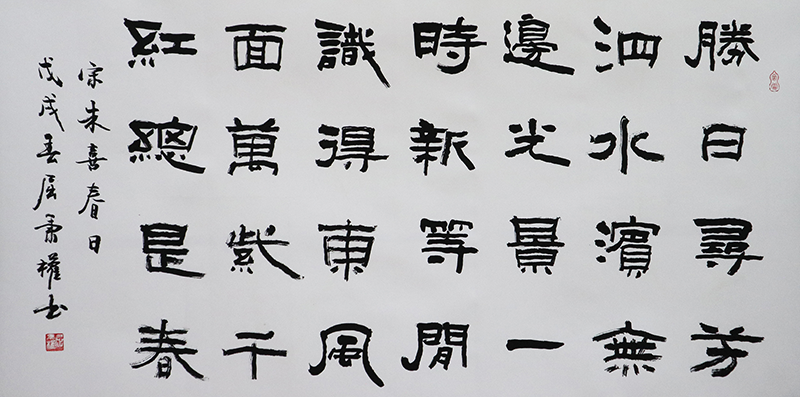 勝日尋芳
泗水濱無
邊光景一
時新等閒
識得東風
面萬紫千
紅總是春
宋朱喜春日
戊戌春權书